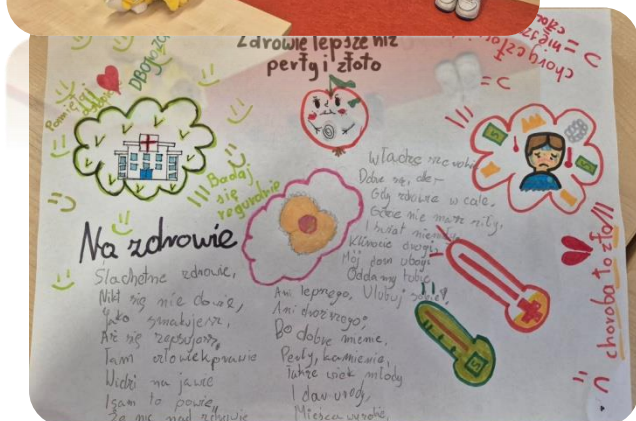 Zdrowie lepsze niż
perły i złoto
Pamiętaj
Badaj
się
regularnie
Na zdrowie
Ślachetne zdrowie,
Nikt się nie dowie,
Jako smakujesz,
Aż się zepsujesz,
Tam człowiek prawie
Widzi na jawie
I sam to powie,
Że nic nad zdrowie
Ani lepszego,
Ani droższego;
Bo dobre mienie,
Perły, kamienie,
Także wiek młody
I dar urody,
Miejsca wysokie,
Władze
Dobre są, ale—
Gdy zdrowie w cale.
Gdzie nie masz siły,
I świat niemiły
Klinocie drogi,
Mój dom ubogi
Oddany tobie
Ulubuj sobie!
chory człowiek
=
choroba to zło!!!